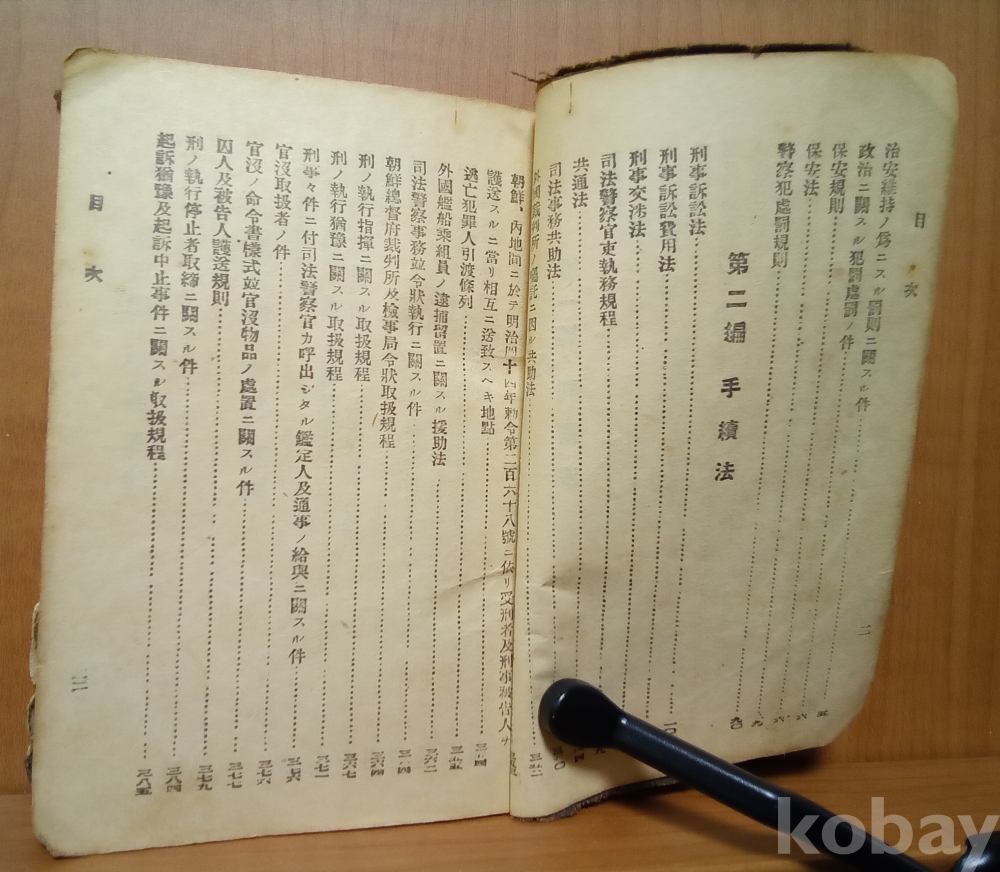 目次
治安維持ノ爲ニスル罰則ニ關スル件
政治ニ關スル犯罪處罰ノ件
保安規則
保安法
警察犯處罰規則
第二編 手續法
刑事訴訟法
刑事訴訟費用法
刑事交渉法
司法警察官吏執務規程
共通法
司法事務共助法
外國裁判所ノ囑託ニ因ル共助法
二
朝鮮、內地間ニ於テ明治四十四年勅令第二百六十八號ニ依リ受刑者及刑事被告人ヲ
護送スルニ當リ相互ニ送致スヘキ地點
逃亡犯罪人引渡條例
外國艦船乘組員ノ逮捕留置ニ關スル援助法
司法警察事務竝令狀執行ニ關スル件
朝鮮總督府裁判所及檢事局令狀取扱規程
刑ノ執行指揮ニ關スル取扱規程
刑ノ執行猶豫ニ關スル取扱規程 三七一
刑事々件ニ付司法警察官カ呼出シタル鑑定人及通事ノ給與ニ關スル件 三七六
官沒取扱者ノ件 三七六
官沒ノ命令書樣式竝官沒物品ノ處置ニ關スル件 三七七
囚人及被告人護送規則 三七九
刑ノ執行停止者取締ニ關スル件 三八四
起訴猶豫及起訴中止事件ニ關スル取扱規程 三八五
目次
三
kobay